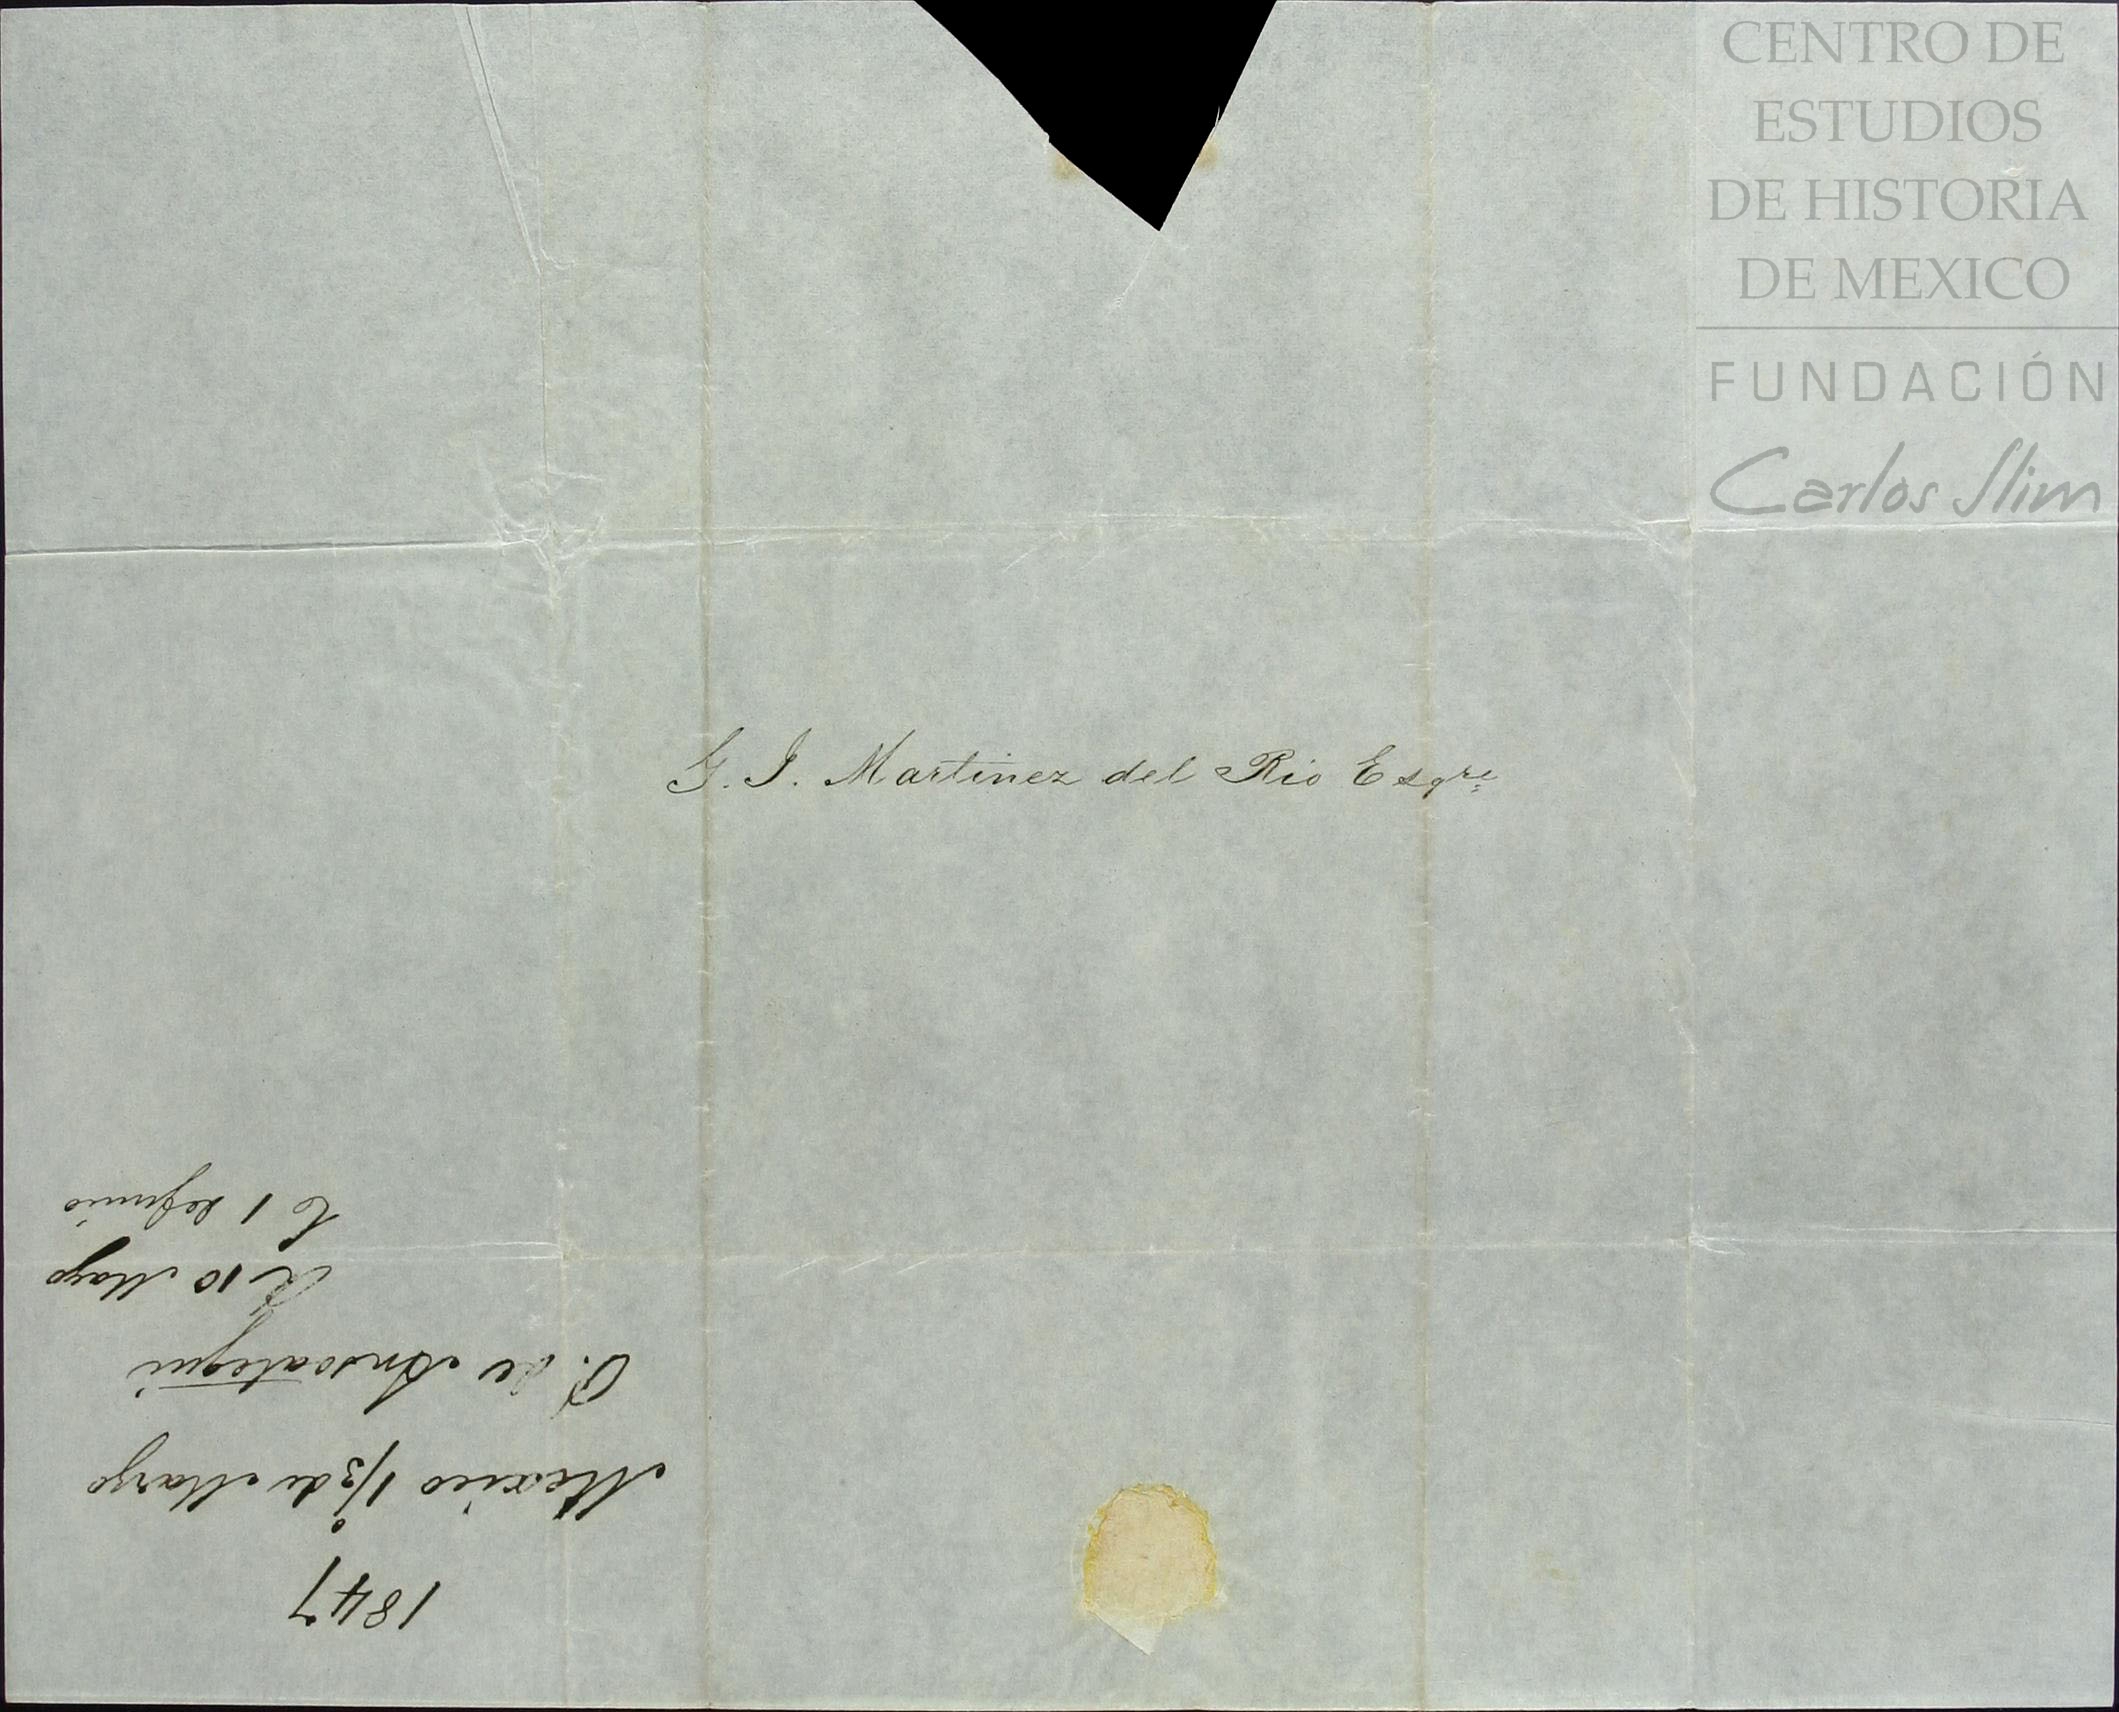 CENTRO DE
ESTUDIOS
DE HISTORIA
DE MEXICO
FUNDACIÓN
Carlos Slim
G. J. Martinez del Rio Esqre
1847
Mexico 1/3 de Marzo
P. de Ansoategui
R 10 Mayo
C 1 de Junio